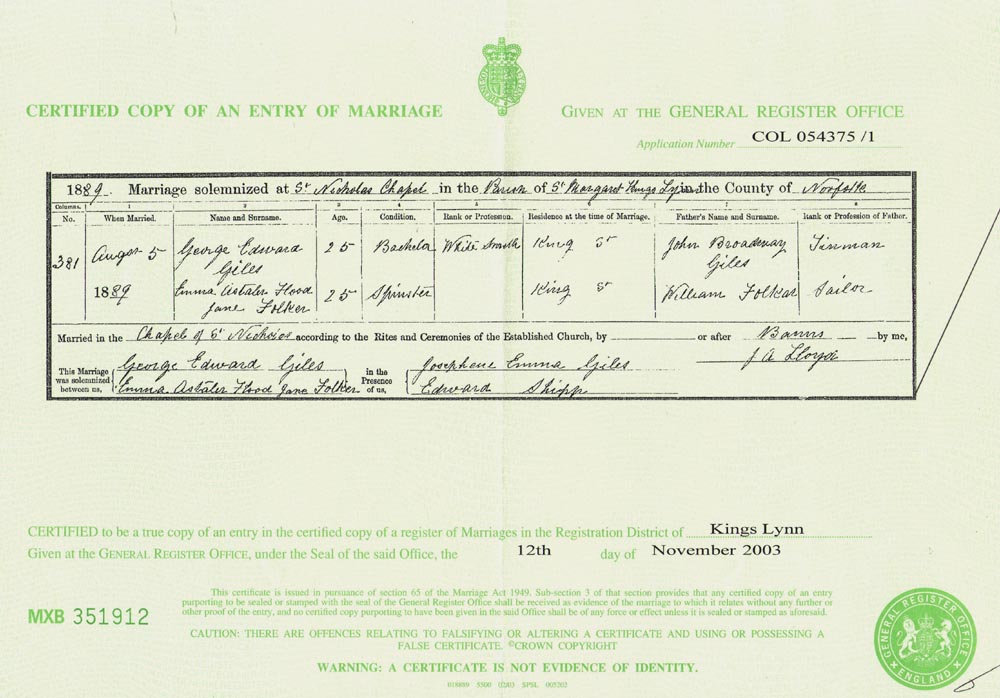 CERTIFIED COPY OF AN ENTRY OF MARRIAGE
GIVEN AT THE GENERAL REGISTER OFFICE
Application Number COL 054375 /1
1889. Marriage solemnized at St Nicholas Chapel in the Parish of St Margaret Kings Lynn in the County of Norfolk
Columns. 1 2 3 4 5 6 7 8
No. When Married. Name and Surname. Age. Condition. Rank or Profession. Residence at the time of Marriage. Father's Name and Surname. Rank or Profession of Father.
381 August 5 George Edward Giles 25 Bachelor White Smith King St John Broadway Giles Tinman
1889 Emma Astaler Flood Jane Folker 25 Spinster King St William Folkar Tailor
Married in the Chapel of St Nicholas according to the Rites and Ceremonies of the Established Church, by or after Banns by me,
J A Lloyd
This Marriage was solemnized between us, George Edward Giles
Emma Astaler Flood Jane Folker
in the Presence of us, Josephene Emma Giles
Edward Shipp
CERTIFIED to be a true copy of an entry in the certified copy of a register of Marriages in the Registration District of Kings Lynn
Given at the GENERAL REGISTER OFFICE, under the Seal of the said Office, the 12th day of November 2003
MXB 351912
This certificate is issued in pursuance of section 65 of the Marriage Act 1949. Sub-section 3 of that section provides that any certified copy of an entry
purporting to be sealed or stamped with the seal of the General Register Office shall be received as evidence of the marriage to which it relates without any further or
other proof of the entry, and no certified copy purporting to have been given in the said Office shall be of any force or effect unless it is sealed or stamped as aforesaid.
CAUTION: THERE ARE OFFENCES RELATING TO FALSIFYING OR ALTERING A CERTIFICATE AND USING OR POSSESSING A
FALSE CERTIFICATE. ©CROWN COPYRIGHT
WARNING: A CERTIFICATE IS NOT EVIDENCE OF IDENTITY.
GENERAL REGISTER OFFICE
ENGLAND